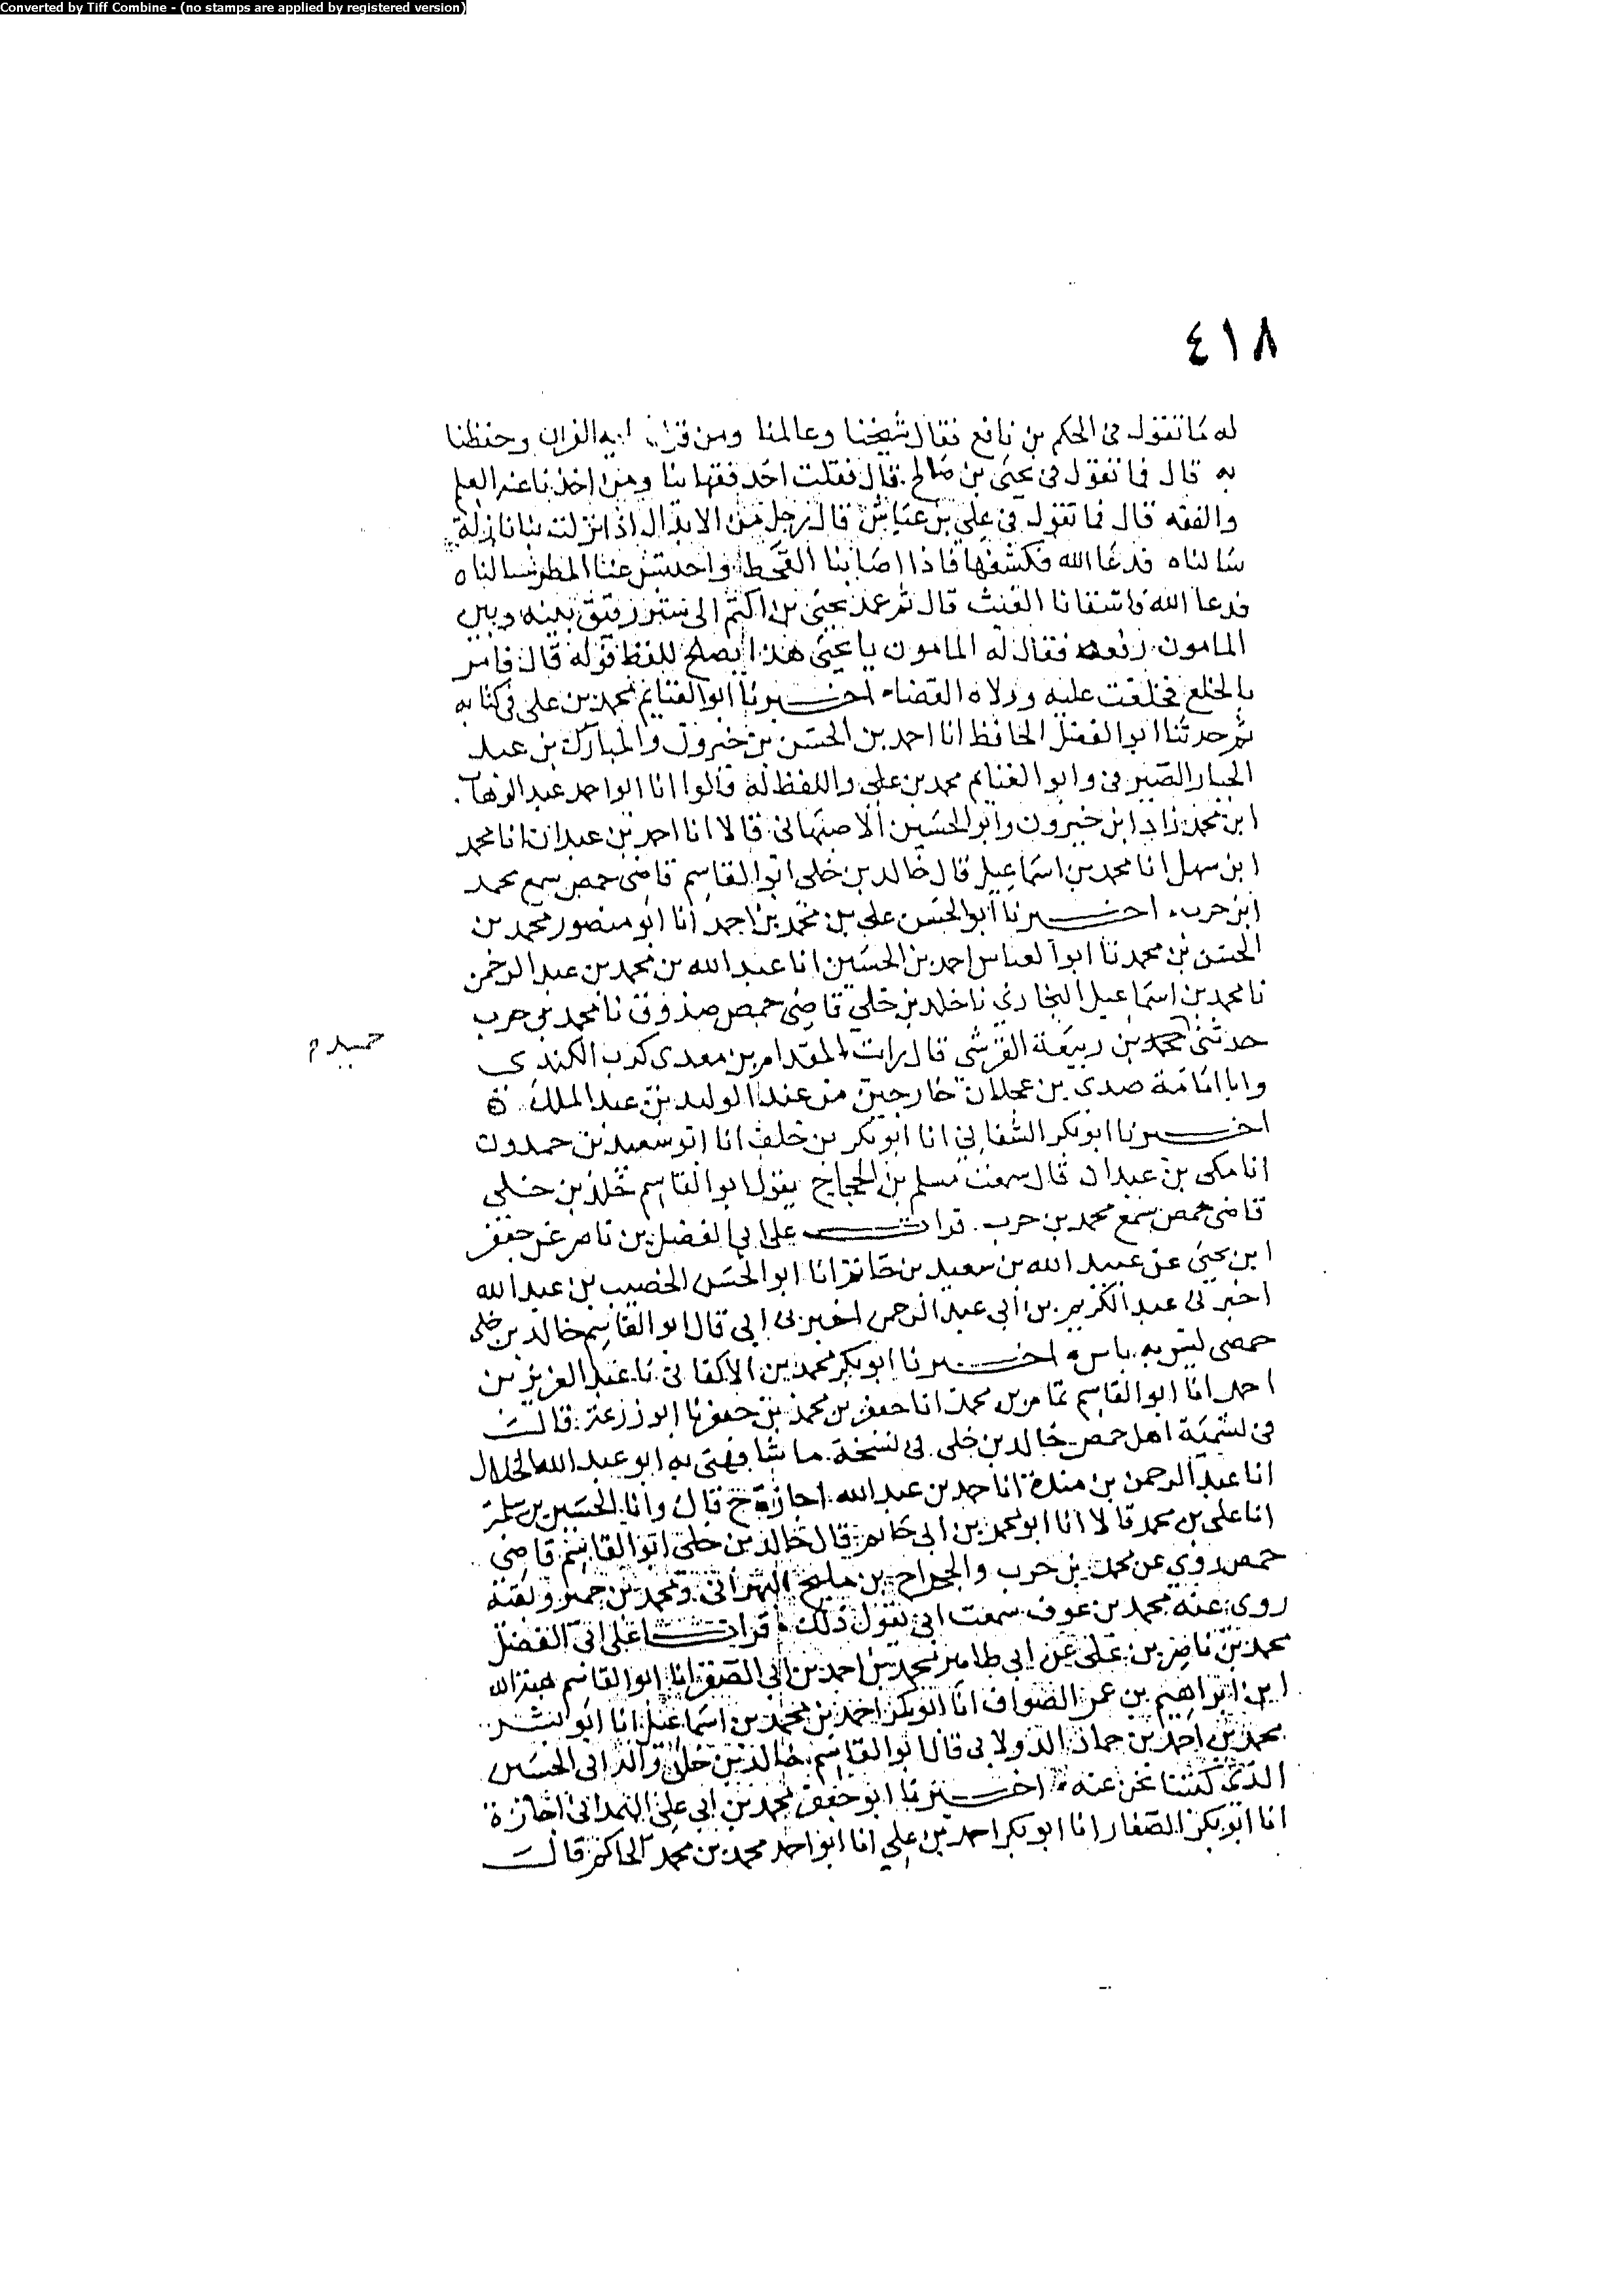 Converted by Tiff Combine - (no stamps are applied by registered version)
٤١٨
له ما تقول فى الحكم بن نافع فقال شيخنا وعالمنا ومن قرانا القران وحفظنا
به قال فما تقول فى يحيى بن صالح قال فقلت احد فقهائنا ومن اخذنا عنه العلم
والفقه قال فما تقول فى على بن عياش قال رجل من الابدال اذا نزلت بنا نازلة
سالناه فدعا الله فكشفها فاذا اصابنا القحط واحتبس عنا المطر سالناه
فدعا الله فاسقانا الغيث قال ثم عمد يحيى بن اكثم الى ستر رقيق بينه وبين
المامون رفعه فقال له المامون يا يحيى هذا يصلح للقضا فوله قال فامر
بالخلع فخلعت عليه وولاه القضاء اخبرنا ابو الغنايم محمد بن على فى كتابه
ثم حدثنا ابو الفضل الحافظ انا احمد بن الحسن بن خيرون والمبارك بن عبد
الجبار الصيرفى وابو الغنايم محمد بن على واللفظ له قالوا انا ابو احمد عبد الوهاب
ابن محمد زاد ابن خيرون وابو الحسين الاصبهانى قالا انا احمد بن عبدان انا محمد
ابن سهل انا محمد بن اسماعيل قال خالد بن خلى ابو القاسم قاضى حمص سمع محمد
ابن حرب اخبرنا ابو الحسن على بن محمد بن احمد انا ابو منصور محمد بن
الحسن بن محمد نا ابو العباس احمد بن الحسين انا عبد الله بن محمد بن عبد الرحمن
نا محمد بن اسماعيل البخارى نا خلد بن خلي قاضى حمص صدوق نا محمد بن حرب
حدثنى محمد بن ربيعة القرشى قال رات المقدام بن معدى كرب الكندى
حميد م
وابا امامة صدى بن عجلان خارجين من عند الوليد بن عبد الملك ه
اخبرنا ابو بكر الشقانى انا ابو بكر بن خلف انا ابو سعيد بن حمدون
انا مكى بن عبدان قال سمعت مسلم بن الحجاج يقول ابو القاسم خلد بن خلى
قاضى حمص سمع محمد بن حرب قرات على ابى الفضل بن ناصر عن جعفر
ابن يحيى عن عبيد الله بن سعيد بن حاتم انا ابو الحسن الخصيب بن عبد الله
اخبرنى عبد الكريم بن ابى عبد الرحمن اخبرنى ابى قال ابو القاسم خالد بن خلى
حمصى ليس به باس اخبرنا ابو بكر محمد بن الاكفانى نا عبد العزيز بن
احمد انا ابو القاسم تمام بن محمد انا جعفر بن محمد بن جعفر نا ابو زرعة قال
فى تسمية اهل حمص خالد بن خلى فى نسخة ما شافهنى به ابو عبد الله الخلال
انا عبد الرحمن بن مندة انا حمد بن عبد الله اجازة ح قال وانا الحسين بن سلمة
انا على بن محمد قالا انا ابو محمد بن ابى حاتم قال خالد بن خلى ابو القاسم قاضى
حمص روى عن محمد بن حرب والجراح بن مليح البهرانى ومحمد بن حمير وبقية
روى عنه محمد بن عوف سمعت ابى يقول ذلك قرات على ابى الفضل
محمد بن ناصر بن على عن ابى طاهر محمد بن احمد بن ابى الصقر انا ابو القاسم هبة الله
ابن ابراهيم بن عمر الصواف انا ابو بكر احمد بن محمد بن اسماعيل انا ابو بشر
محمد بن احمد بن حماد الدولابى قال ابو القاسم خالد بن خلى والد ابى الحسين
الذى كتبنا نحن عنه اخبرنا ابو جعفر محمد بن ابى على الهمدانى اجازة
انا ابو بكر الصفار انا ابو بكر احمد بن على انا ابو احمد محمد بن محمد الحاكم قال